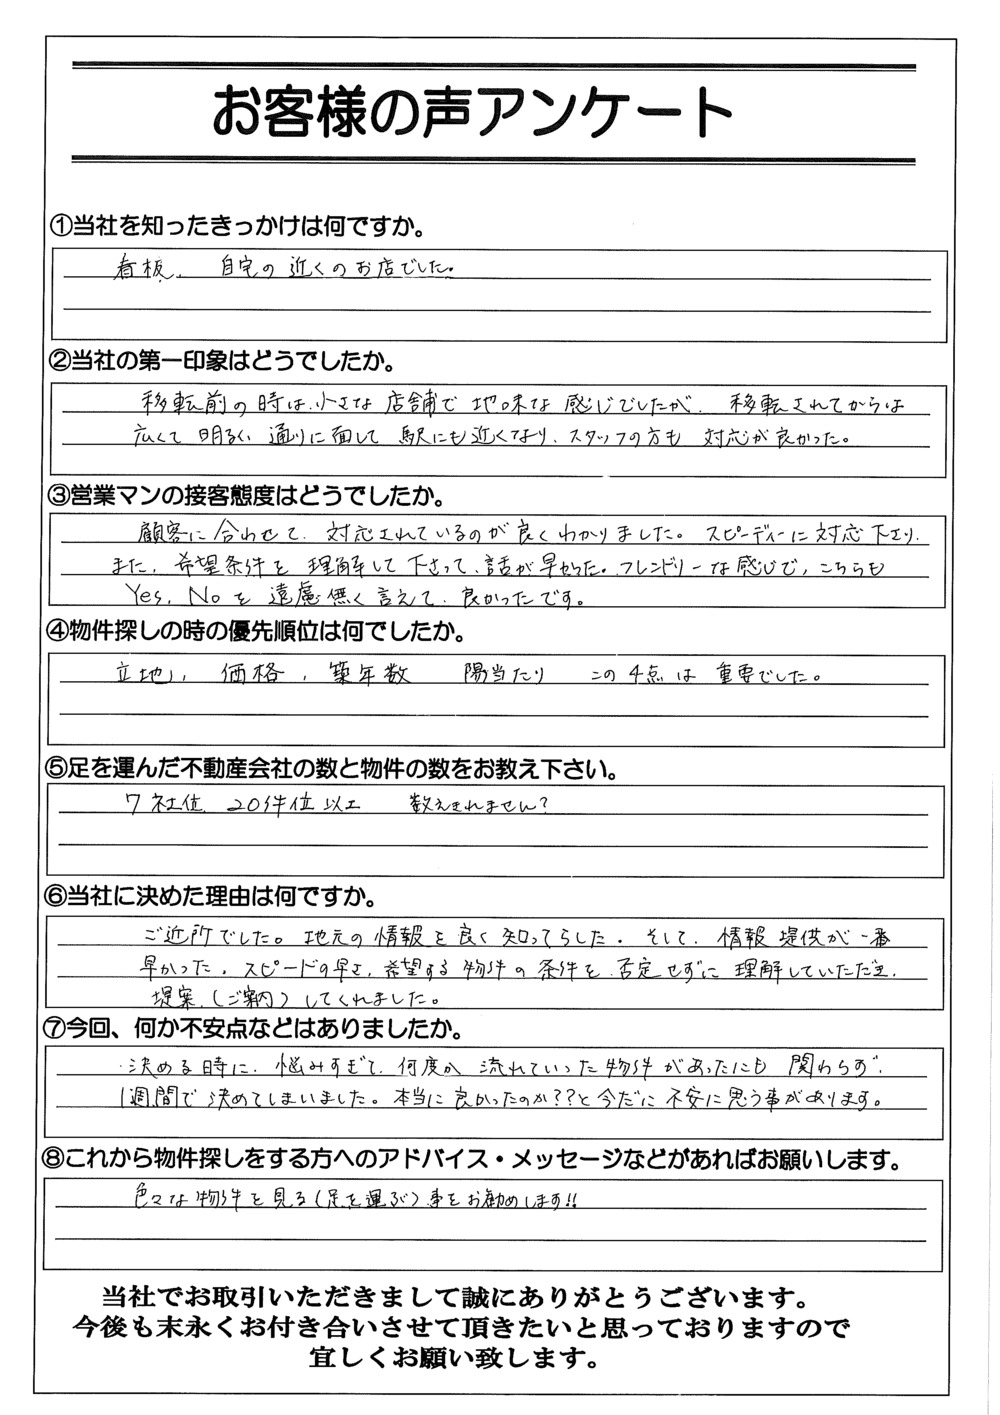 お客様の声アンケート
①当社を知ったきっかけは何ですか。
看板、自宅の近くのお店でした。
②当社の第一印象はどうでしたか。
移転前の時は、小さな店舗で地味な感じでしたが、移転されてからは
広くて明るく、通りに面して駅にも近くなり、スタッフの方も対応が良かった。
③営業マンの接客態度はどうでしたか。
顧客に合わせて、対応されているのが良くわかりました。スピーディーに対応下さり、
また、希望条件を理解して下さって、話が早かった。フレンドリーな感じで、こちらも
Yes, Noを遠慮無く言えて、良かったです。
④物件探しの時の優先順位は何でしたか。
立地、価格、築年数 陽当たり この4点は重要でした。
⑤足を運んだ不動産会社の数と物件の数をお教え下さい。
7社位、20件位以上 数えきれません?
⑥当社に決めた理由は何ですか。
ご近所でした。地元の情報を良く知ってらした。そして、情報提供が一番
早かった。スピードの早さ、希望する物件の条件を、否定せずに理解していただき、
提案(ご案内)してくれました。
⑦今回、何か不安点などはありましたか。
決める時に、悩みすぎて、何度か流れていった物件があったにも関わらず、
1週間で決めてしまいました。本当に良かったのか??と今だに不安に思う事があります。
⑧これから物件探しをする方へのアドバイス・メッセージなどがあればお願いします。
色々な物件を見る(足を運ぶ)事をお勧めします!!
当社でお取引いただきまして誠にありがとうございます。
今後も末永くお付き合いさせて頂きたいと思っておりますので
宜しくお願い致します。